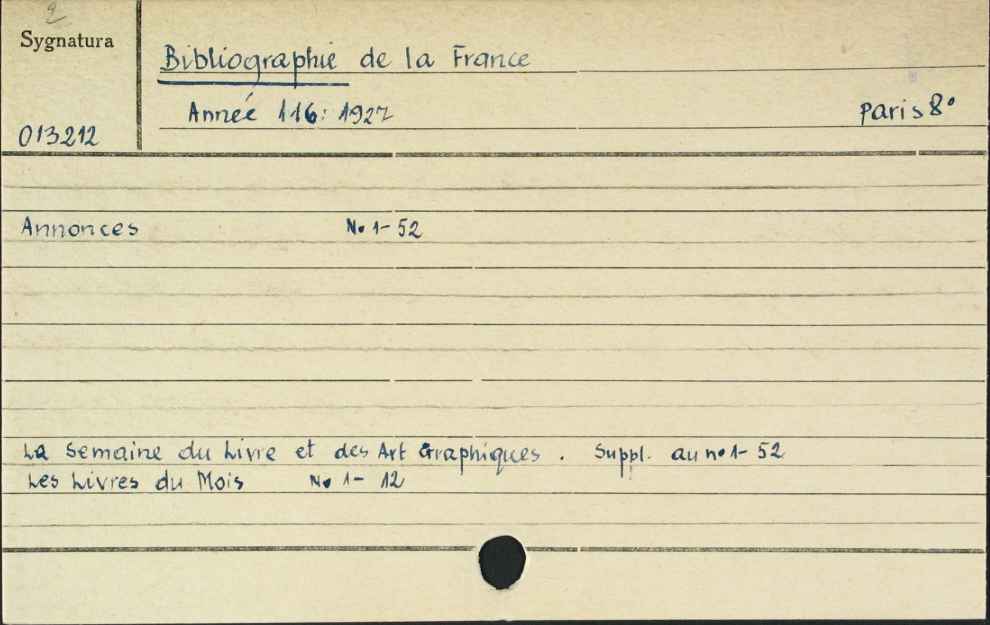 2
Sygnatura
Bibliographie de la France
Année 116: 1927
Paris 8°
013212
Annonces No 1-52
La Semaine du Livre et des Art Graphiques. Suppl. au no 1-52
Les Livres du Mois No 1-12